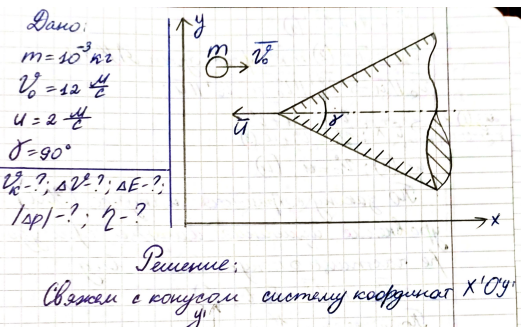 Дано:
m=10⁻³ кг
V₀=12 м/с
u=2 м/с
γ=90°
Vк-?; ΔV-?; ΔE-?;
|Δp|-?; η-?
y
m
V₀
u
γ
x
Решение:
Свяжем с конусом систему координат X'O'y'
y'